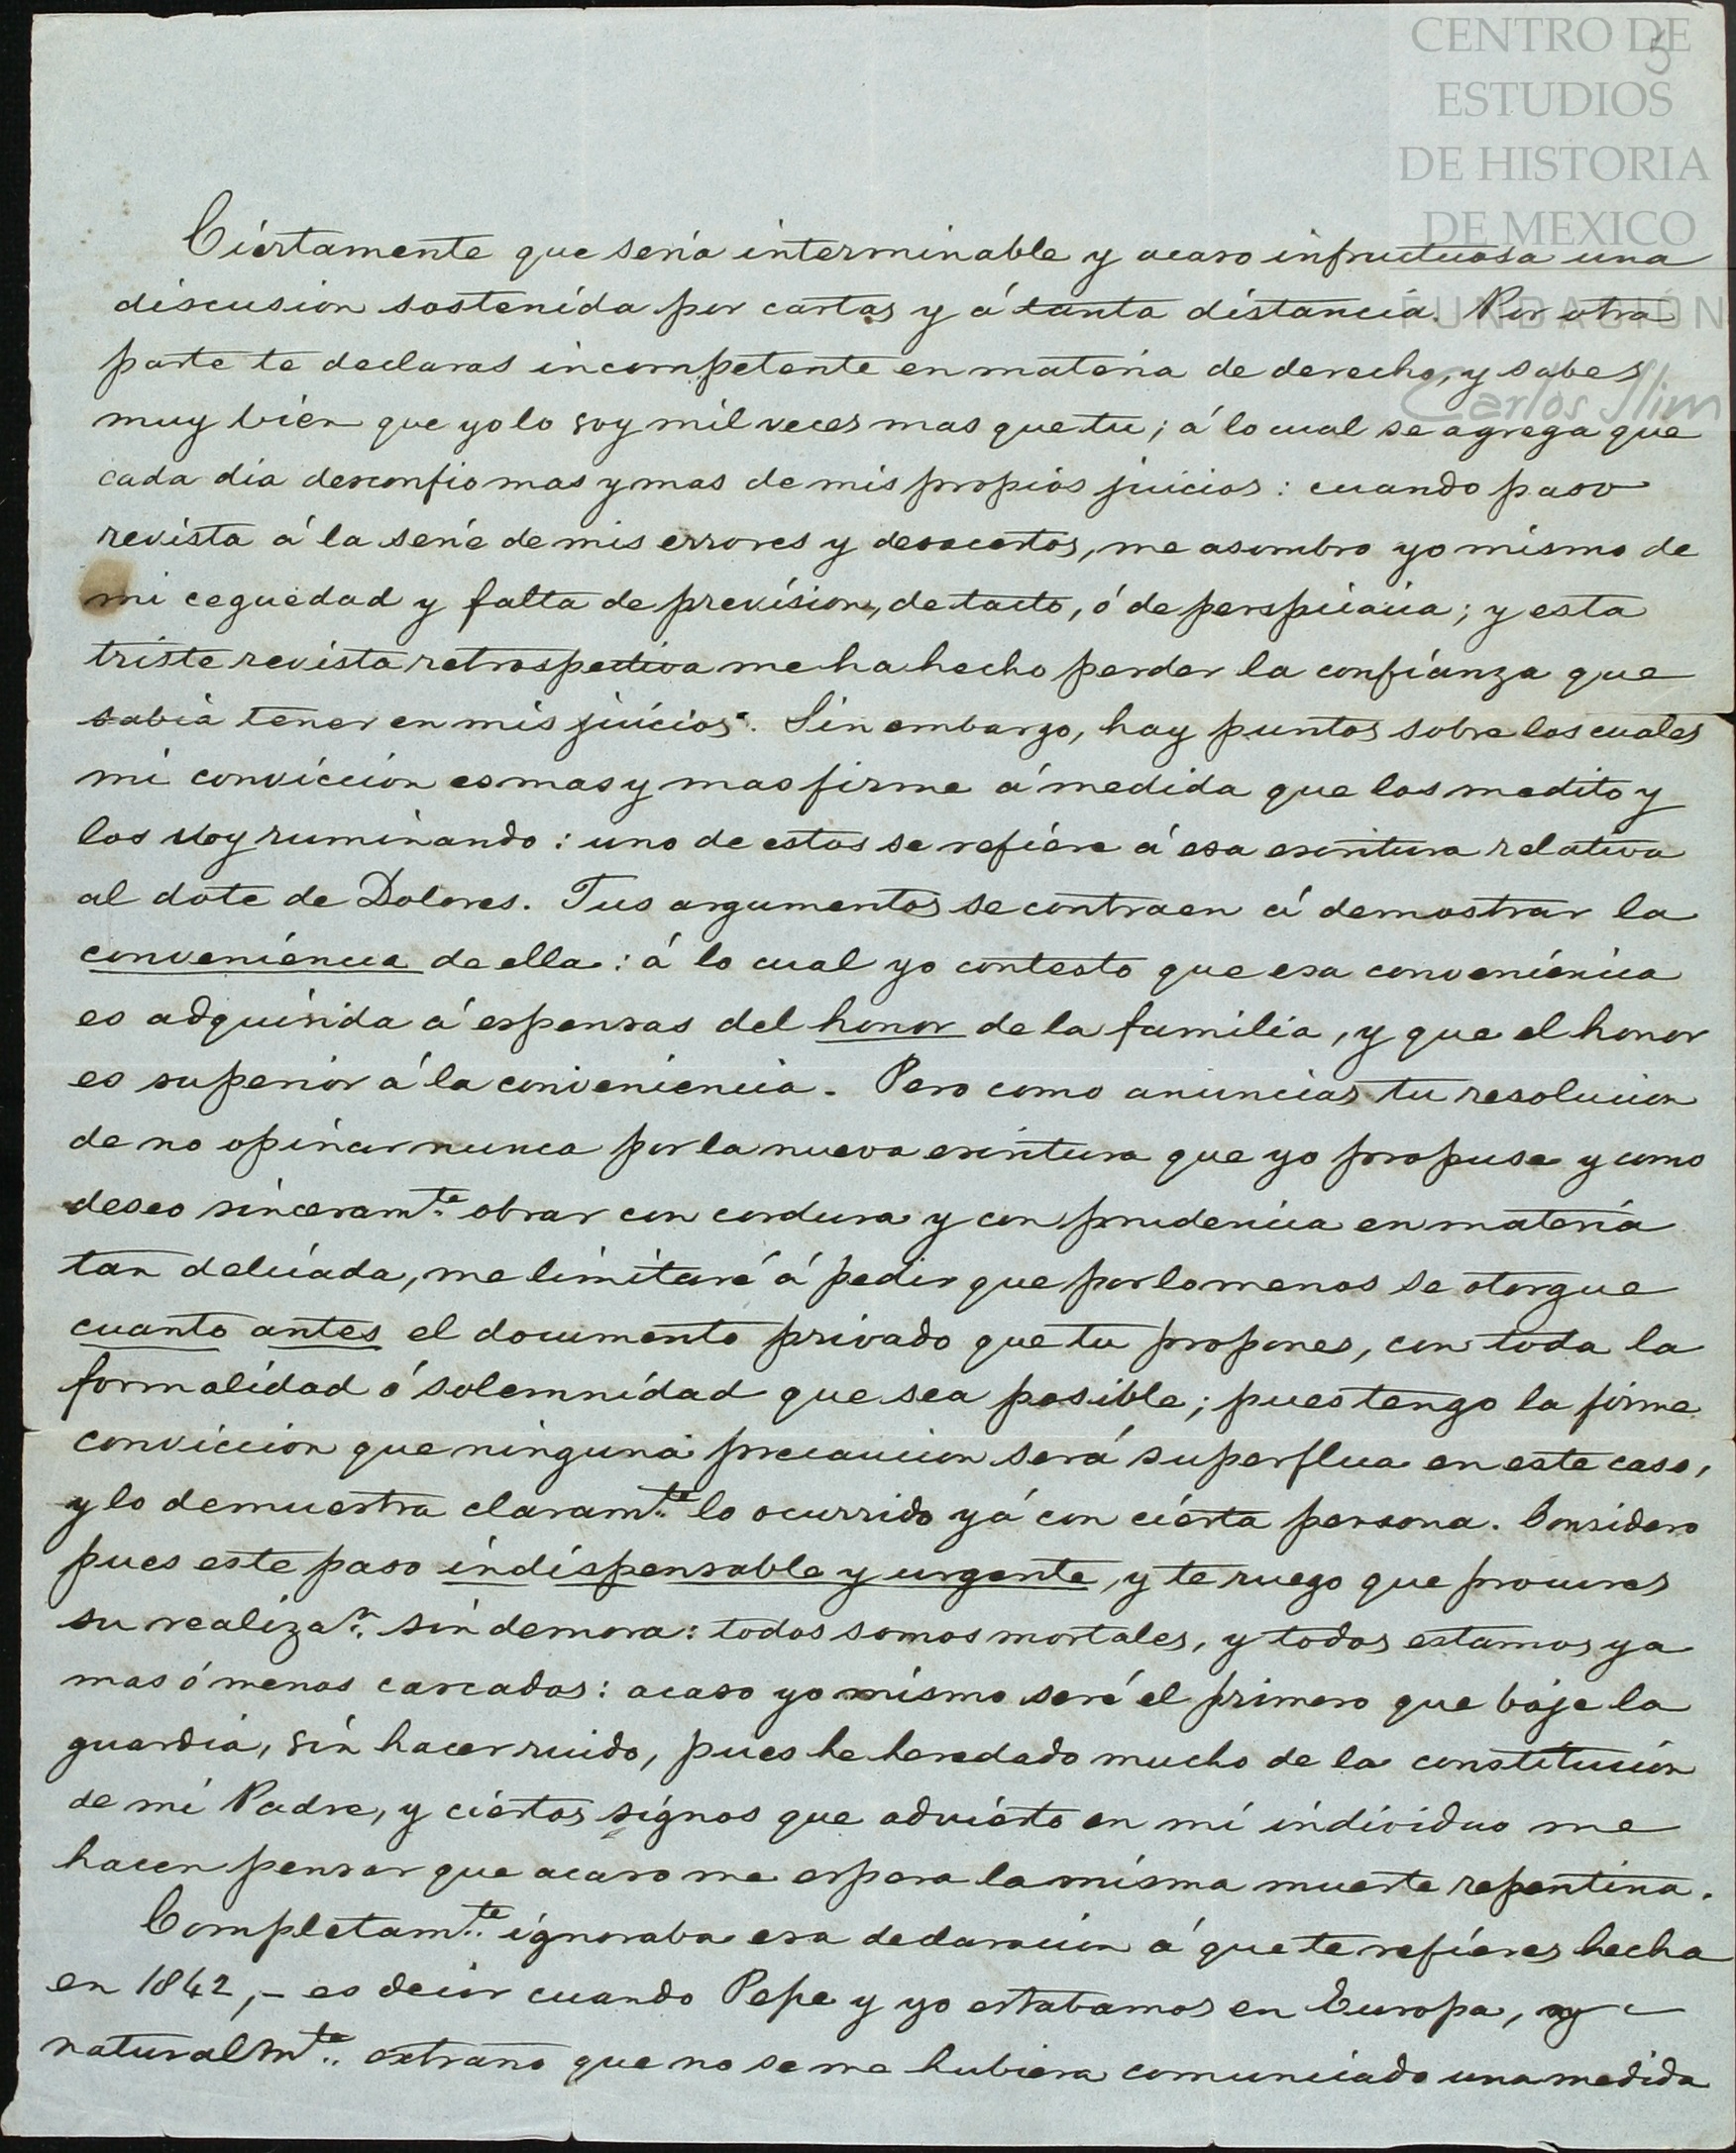 CENTRO DE
ESTUDIOS
DE HISTORIA
DE MEXICO
FUNDACIÓN
Carlos Slim
5
Ciertamente que sería interminable y acaso infructuosa una
discusion sostenida por cartas y á tanta distancia. Por otra
parte te declaras incompetente en materia de derecho, y sabes
muy bien que yo lo soy mil veces mas que tu; á lo cual se agrega que
cada dia desconfio mas y mas de mis propios juicios: cuando paso
revista á la serie de mis errores y desaciertos, me asombro yo mismo de
mi ceguedad y falta de prevision, de tacto, ó de perspicacia; y esta
triste revista retrospectiva me ha hecho perder la confianza que
sabia tener en mis juicios. Sin embargo, hay puntos sobre los cuales
mi conviccion es mas y mas firme á medida que los medito y
los voy ruminando: uno de estos se refiere á esa escritura relativa
al dote de Dolores. Tus argumentos se contraen á demostrar la
conveniencia de ella: á lo cual yo contesto que esa conveniencia
es adquirida á espensas del honor de la familia, y que el honor
es superior á la conveniencia. Pero como anuncias tu resolucion
de no opinar nunca por la nueva escritura que yo propuse y como
deseo sinceramte. obrar con cordura y con prudencia en materia
tan delicada, me limitaré á pedir que por lo menos se otorgue
cuanto antes el documento privado que tu propones, con toda la
formalidad ó solemnidad que sea posible; pues tengo la firme
conviccion que ninguna precaucion será superflua en este caso,
y lo demuestra claramte. lo ocurrido yá con cierta persona. Considero
pues este paso indispensable y urgente, y te ruego que procures
su realizan. sin demora: todos somos mortales, y todos estamos ya
mas ó menos cascados: acaso yo mismo seré el primero que baje la
guardia, sin hacer ruido, pues he heredado mucho de la constitucion
de mi Padre, y ciertos signos que advierto en mi individuo me
hacen pensar que acaso me espera la misma muerte repentina.
Completamte. ignoraba esa declaracion á que te refieres hecha
en 1842, - es decir cuando Pepe y yo estabamos en Europa, y
naturalmte. extraño que no se me hubiera comunicado una medida